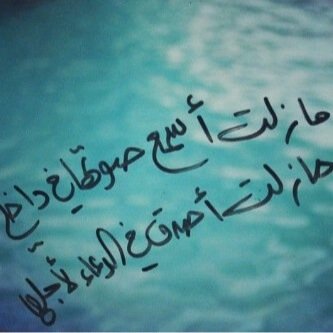 مازلت أسمع صوتها في داخلي
مازلت أصدق في الدعاء لأجلها